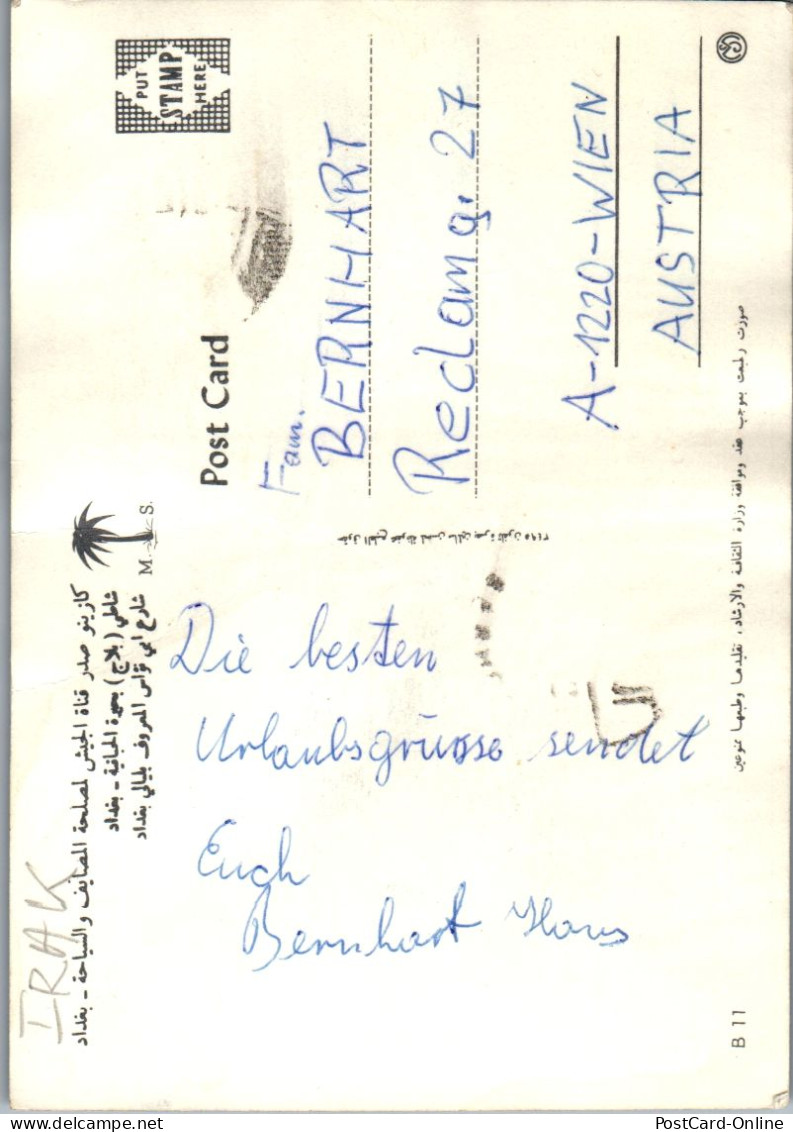 IRAK
كازينو صدر قناة الجيش لمصلحة المصايف والسياحة - بغداد
شاطي (بلاج) بحيرة الحبانية - بغداد
شارع ابي نؤاس المعروف بليالي بغداد
M. S.
Die besten
Urlaubsgrüsse sendet
Euch
Bernhart Hans
B 11
Post Card
PUT
STAMP
HERE
Fam.
BERNHART
Reclamg. 27
A-1220-WIEN
AUSTRIA
صورت وطبعت بموجب عقد وموافقة وزارة الثقافة والارشاد، تقليدها وطبعها ممنوعين
PostCard-Online